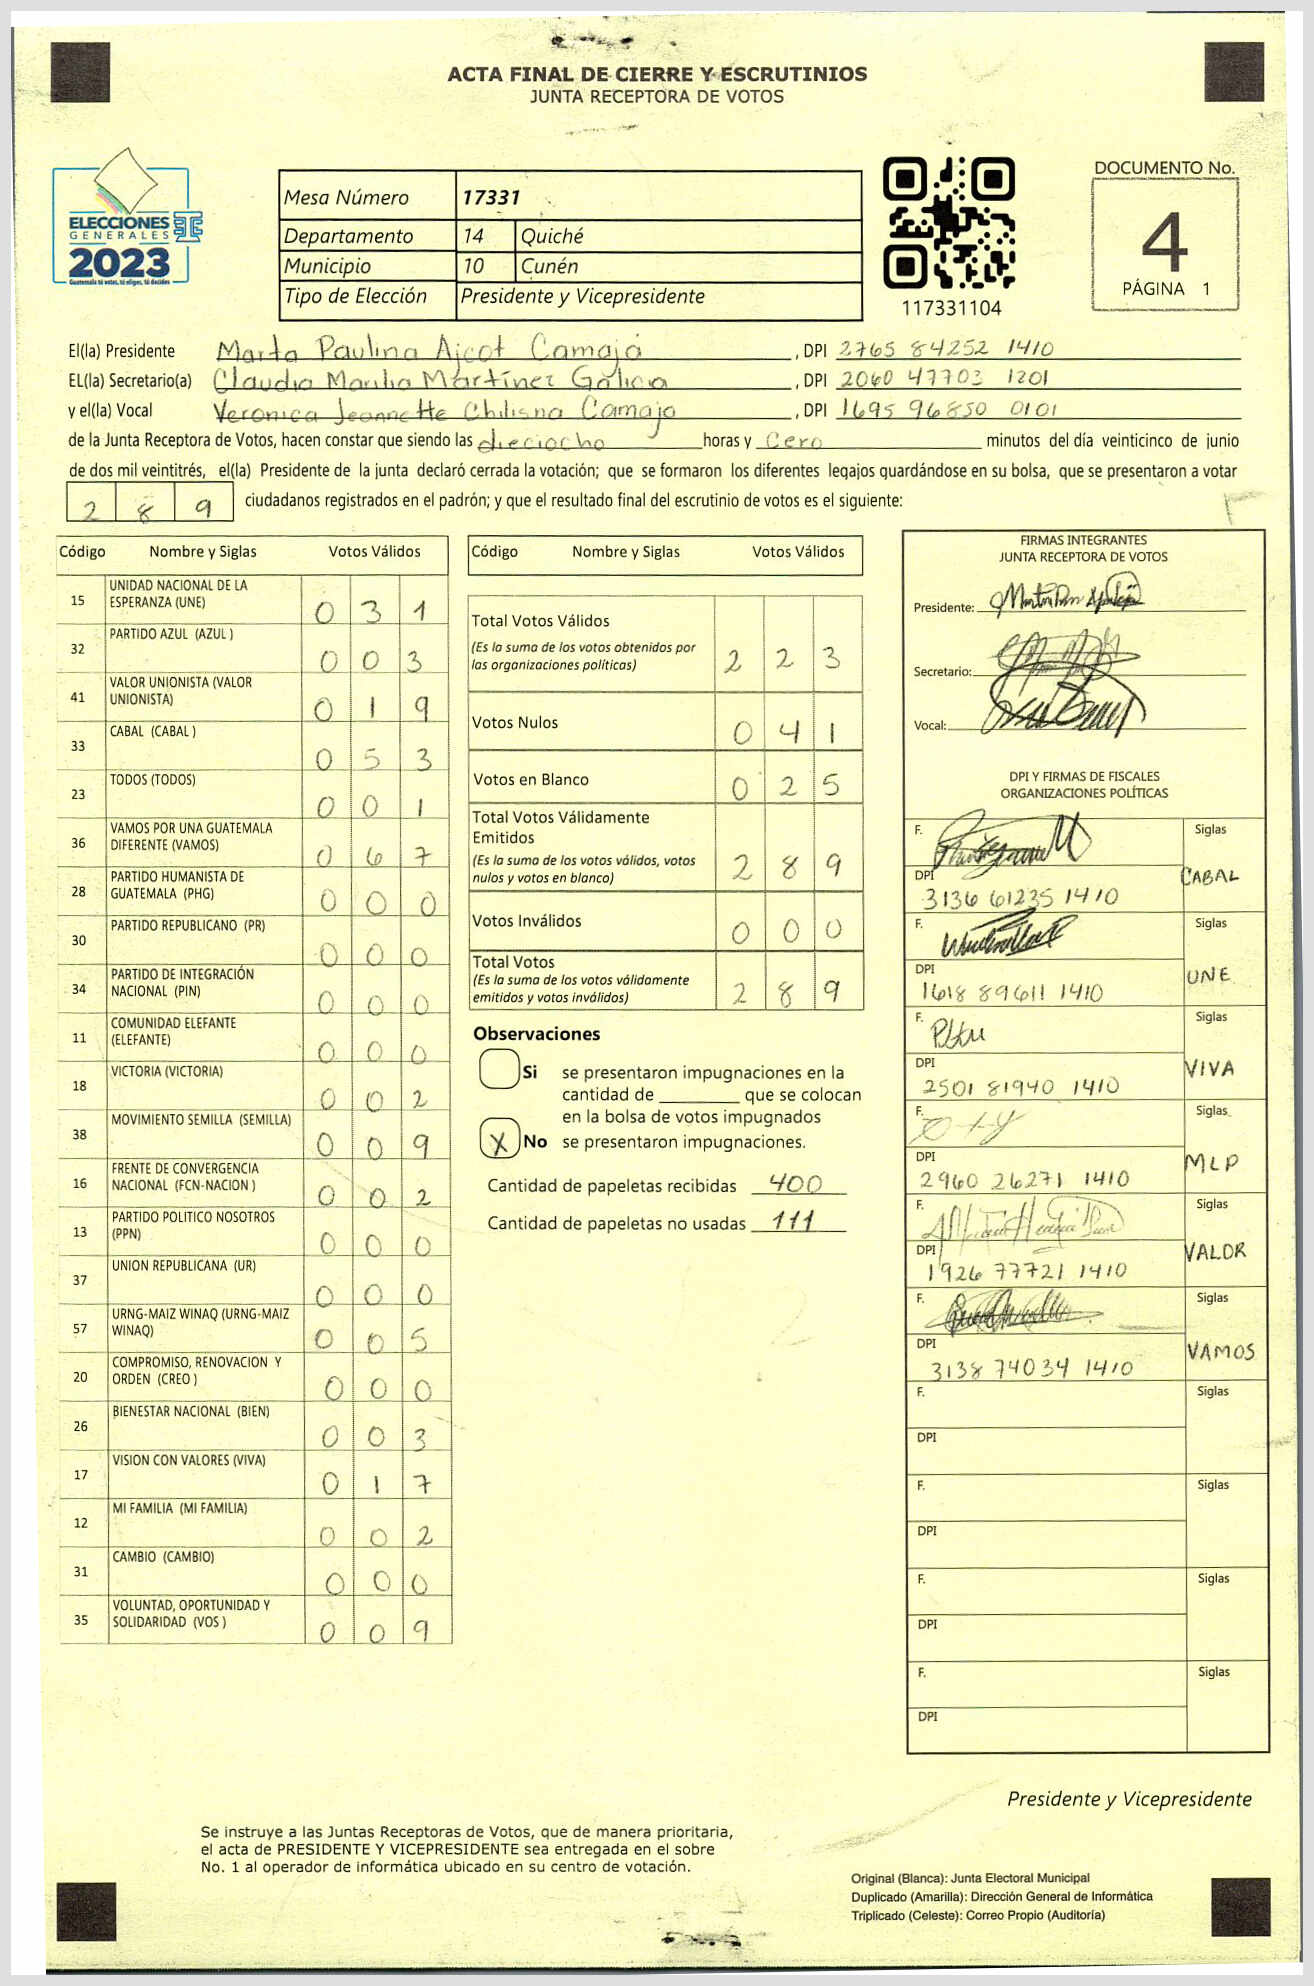 ACTA FINAL DE CIERRE Y ESCRUTINIOS
JUNTA RECEPTORA DE VOTOS
ELECCIONES
GENERALES
2023
Guatemala tú votas, tú eliges, tú decides
Mesa Número 17331
Departamento 14 Quiché
Municipio 10 Cunén
Tipo de Elección Presidente y Vicepresidente
117331104
DOCUMENTO No.
4
PÁGINA 1
El(la) Presidente Marta Paulina Ajcot Camajá , DPI 2765 84252 1410
EL(la) Secretario(a) Claudia Marilia Martínez Galicia , DPI 2060 47703 1201
y el(la) Vocal Veronica Jeannette Chilisna Camajo , DPI 1695 96850 0101
de la Junta Receptora de Votos, hacen constar que siendo las dieciocho horas y Cero minutos del día veinticinco de junio
de dos mil veintitrés, el(la) Presidente de la junta declaró cerrada la votación; que se formaron los diferentes legajos quardándose en su bolsa, que se presentaron a votar
2 8 9 ciudadanos registrados en el padrón; y que el resultado final del escrutinio de votos es el siguiente:
Código Nombre y Siglas Votos Válidos
15 UNIDAD NACIONAL DE LA ESPERANZA (UNE) 0 3 1
32 PARTIDO AZUL (AZUL ) 0 0 3
41 VALOR UNIONISTA (VALOR UNIONISTA) 0 1 9
33 CABAL (CABAL ) 0 5 3
23 TODOS (TODOS) 0 0 1
36 VAMOS POR UNA GUATEMALA DIFERENTE (VAMOS) 0 6 7
28 PARTIDO HUMANISTA DE GUATEMALA (PHG) 0 0 0
30 PARTIDO REPUBLICANO (PR) 0 0 0
34 PARTIDO DE INTEGRACIÓN NACIONAL (PIN) 0 0 0
11 COMUNIDAD ELEFANTE (ELEFANTE) 0 0 0
18 VICTORIA (VICTORIA) 0 0 2
38 MOVIMIENTO SEMILLA (SEMILLA) 0 0 9
16 FRENTE DE CONVERGENCIA NACIONAL (FCN-NACION ) 0 0 2
13 PARTIDO POLITICO NOSOTROS (PPN) 0 0 0
37 UNION REPUBLICANA (UR) 0 0 0
57 URNG-MAIZ WINAQ (URNG-MAIZ WINAQ) 0 0 5
20 COMPROMISO, RENOVACION Y ORDEN (CREO ) 0 0 0
26 BIENESTAR NACIONAL (BIEN) 0 0 3
17 VISION CON VALORES (VIVA) 0 1 7
12 MI FAMILIA (MI FAMILIA) 0 0 2
31 CAMBIO (CAMBIO) 0 0 0
35 VOLUNTAD, OPORTUNIDAD Y SOLIDARIDAD (VOS ) 0 0 9
Código Nombre y Siglas Votos Válidos
Total Votos Válidos 2 2 3
(Es la suma de los votos obtenidos por
las organizaciones políticas)
Votos Nulos 0 4 1
Votos en Blanco 0 2 5
Total Votos Válidamente
Emitidos 2 8 9
(Es la suma de los votos válidos, votos
nulos y votos en blanco)
Votos Inválidos 0 0 0
Total Votos 2 8 9
(Es la suma de los votos válidamente
emitidos y votos inválidos)
Observaciones
Si se presentaron impugnaciones en la
cantidad de ________ que se colocan
en la bolsa de votos impugnados
X No se presentaron impugnaciones.
Cantidad de papeletas recibidas 400
Cantidad de papeletas no usadas 111
FIRMAS INTEGRANTES
JUNTA RECEPTORA DE VOTOS
Presidente:
Secretario:
Vocal:
DPI Y FIRMAS DE FISCALES
ORGANIZACIONES POLÍTICAS
F. Siglas
DPI CABAL
3136 61235 1410
F. Siglas
DPI UNE
1618 89611 1410
F. Siglas
DPI VIVA
2501 81940 1410
F. Siglas
DPI MLP
2960 26271 1410
F. Siglas
DPI VALOR
1926 77721 1410
F. Siglas
DPI VAMOS
3138 74034 1410
F. Siglas
DPI
F. Siglas
DPI
F. Siglas
DPI
F. Siglas
DPI
Presidente y Vicepresidente
Se instruye a las Juntas Receptoras de Votos, que de manera prioritaria,
el acta de PRESIDENTE Y VICEPRESIDENTE sea entregada en el sobre
No. 1 al operador de informática ubicado en su centro de votación.
Original (Blanca): Junta Electoral Municipal
Duplicado (Amarilla): Dirección General de Informática
Triplicado (Celeste): Correo Propio (Auditoría)